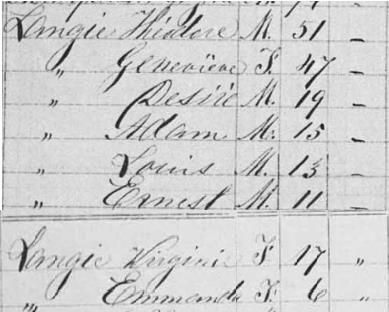 Langie Théodore M. 51 –
" Geneviève F. 47 –
" Desire M. 19 –
" Adam M. 15 –
" Louis M. 13 –
" Ernest M. 11 –
Langie Virginie F. 17 "
" Emmanda F. 6 "